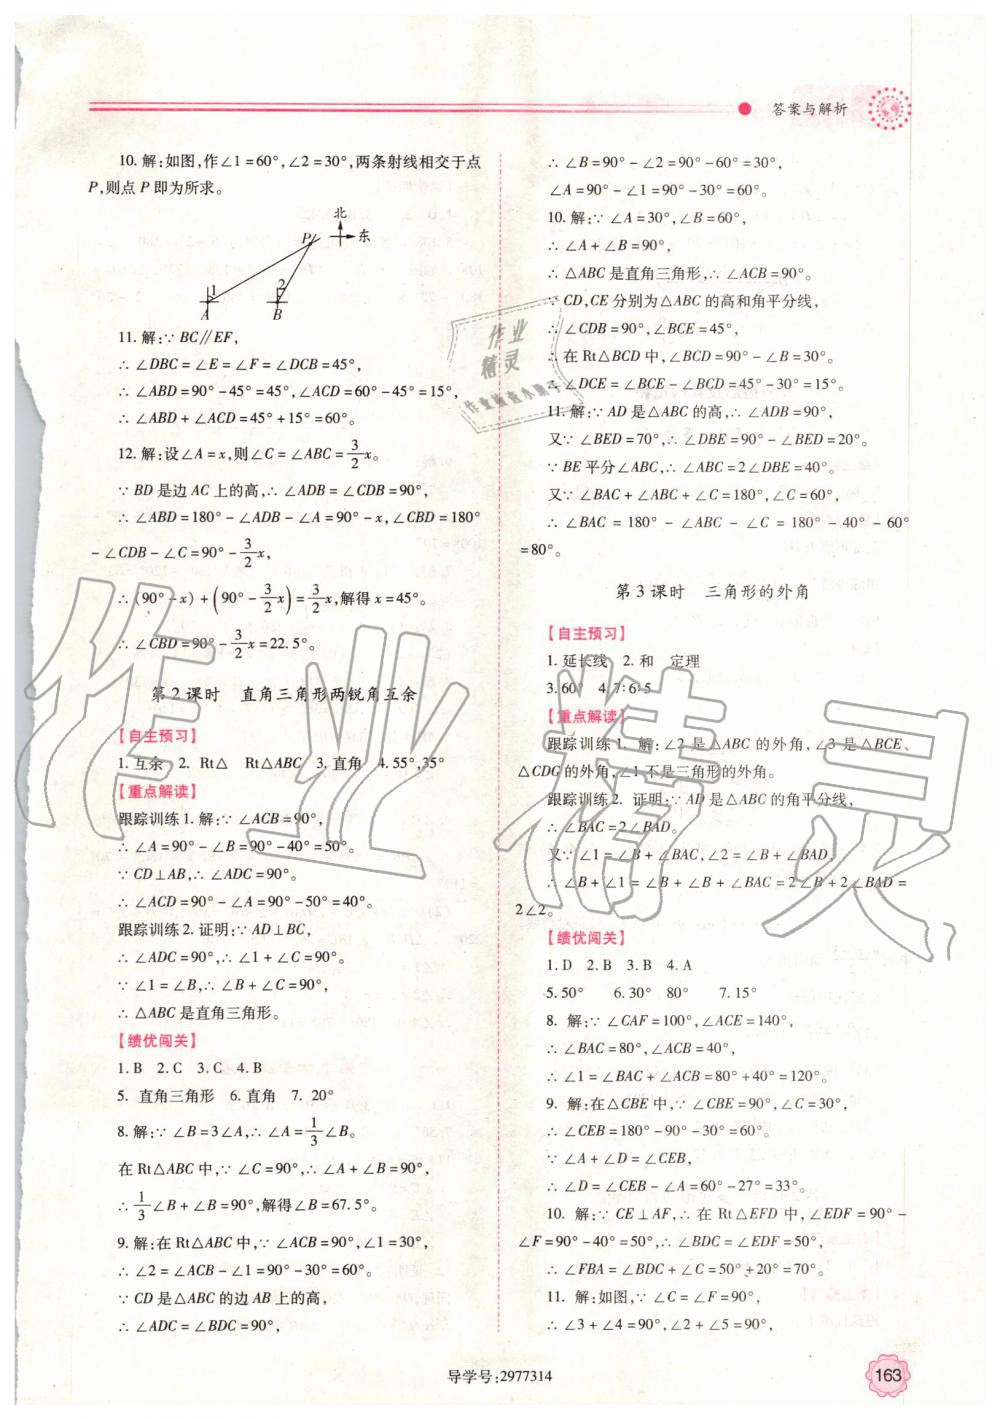 答案与解析
10. 解:如图,作∠1=60°,∠2=30°,两条射线相交于点
P,则点P即为所求。
北
东
P
1
2
A
B
11. 解:∵BC∥EF,
∴∠DBC=∠E=∠F=∠DCB=45°,
∴∠ABD=90°-45°=45°,∠ACD=60°-45°=15°,
∴∠ABD+∠ACD=45°+15°=60°。
12. 解:设∠A=x,则∠C=∠ABC=3/2x。
∵BD是边AC上的高,∴∠ADB=∠CDB=90°,
∴∠ABD=180°-∠ADB-∠A=90°-x,∠CBD=180°
-∠CDB-∠C=90°-3/2x,
∴(90°-x)+(90°-3/2x)=3/2x,解得x=45°。
∴∠CBD=90°-3/2x=22.5°。
第2课时 直角三角形两锐角互余
【自主预习】
1. 互余 2. Rt△ Rt△ABC 3. 直角 4. 55°,35°
【重点解读】
跟踪训练1. 解:∵∠ACB=90°,
∴∠A=90°-∠B=90°-40°=50°。
∵CD⊥AB,∴∠ADC=90°。
∴∠ACD=90°-∠A=90°-50°=40°。
跟踪训练2. 证明:∵AD⊥BC,
∴∠ADC=90°,∴∠1+∠C=90°。
∵∠1=∠B,∴∠B+∠C=90°,
∴△ABC是直角三角形。
【绩优闯关】
1. B 2. C 3. C 4. B
5. 直角三角形 6. 直角 7. 20°
8. 解:∵∠B=3∠A,∴∠A=1/3∠B。
在Rt△ABC中,∵∠C=90°,∴∠A+∠B=90°,
∴1/3∠B+∠B=90°,解得∠B=67.5°。
9. 解:在Rt△ABC中,∵∠ACB=90°,∠1=30°,
∴∠2=∠ACB-∠1=90°-30°=60°。
∵CD是△ABC的边AB上的高,
∴∠ADC=∠BDC=90°,
∴∠B=90°-∠2=90°-60°=30°,
∠A=90°-∠1=90°-30°=60°。
10. 解:∵∠A=30°,∠B=60°,
∴∠A+∠B=90°,
∴△ABC是直角三角形,∴∠ACB=90°。
∵CD,CE分别为△ABC的高和角平分线,
∴∠CDB=90°,∠BCE=45°,
∴在Rt△BCD中,∠BCD=90°-∠B=30°,
∴∠DCE=∠BCE-∠BCD=45°-30°=15°。
11. 解:∵AD是△ABC的高,∴∠ADB=90°,
又∵∠BED=70°,∴∠DBE=90°-∠BED=20°。
∵BE平分∠ABC,∴∠ABC=2∠DBE=40°。
又∵∠BAC+∠ABC+∠C=180°,∠C=60°,
∴∠BAC=180°-∠ABC-∠C=180°-40°-60°
=80°。
第3课时 三角形的外角
【自主预习】
1. 延长线 2. 和 定理
3. 60° 4. 7:6:5
【重点解读】
跟踪训练1. 解:∠2是△ABC的外角,∠3是△BCE、
△CDG的外角,∠1不是三角形的外角。
跟踪训练2. 证明:∵AD是△ABC的角平分线,
∴∠BAC=2∠BAD。
又∵∠1=∠B+∠BAC,∠2=∠B+∠BAD,
∴∠B+∠1=∠B+∠B+∠BAC=2∠B+2∠BAD=
2∠2。
【绩优闯关】
1. D 2. B 3. B 4. A
5. 50° 6. 30° 80° 7. 15°
8. 解:∵∠CAF=100°,∠ACE=140°,
∴∠BAC=80°,∠ACB=40°,
∴∠1=∠BAC+∠ACB=80°+40°=120°。
9. 解:在△CBE中,∵∠CBE=90°,∠C=30°,
∴∠CEB=180°-90°-30°=60°。
∵∠A+∠D=∠CEB,
∴∠D=∠CEB-∠A=60°-27°=33°。
10. 解:∵CE⊥AF,∴在Rt△EFD中,∠EDF=90°-
∠F=90°-40°=50°,∴∠BDC=∠EDF=50°,
∴∠FBA=∠BDC+∠C=50°+20°=70°。
11. 解:如图,∵∠C=∠F=90°,
∴∠3+∠4=90°,∠2+∠5=90°,
作业精灵
作业
精灵
导学号:2977314
163